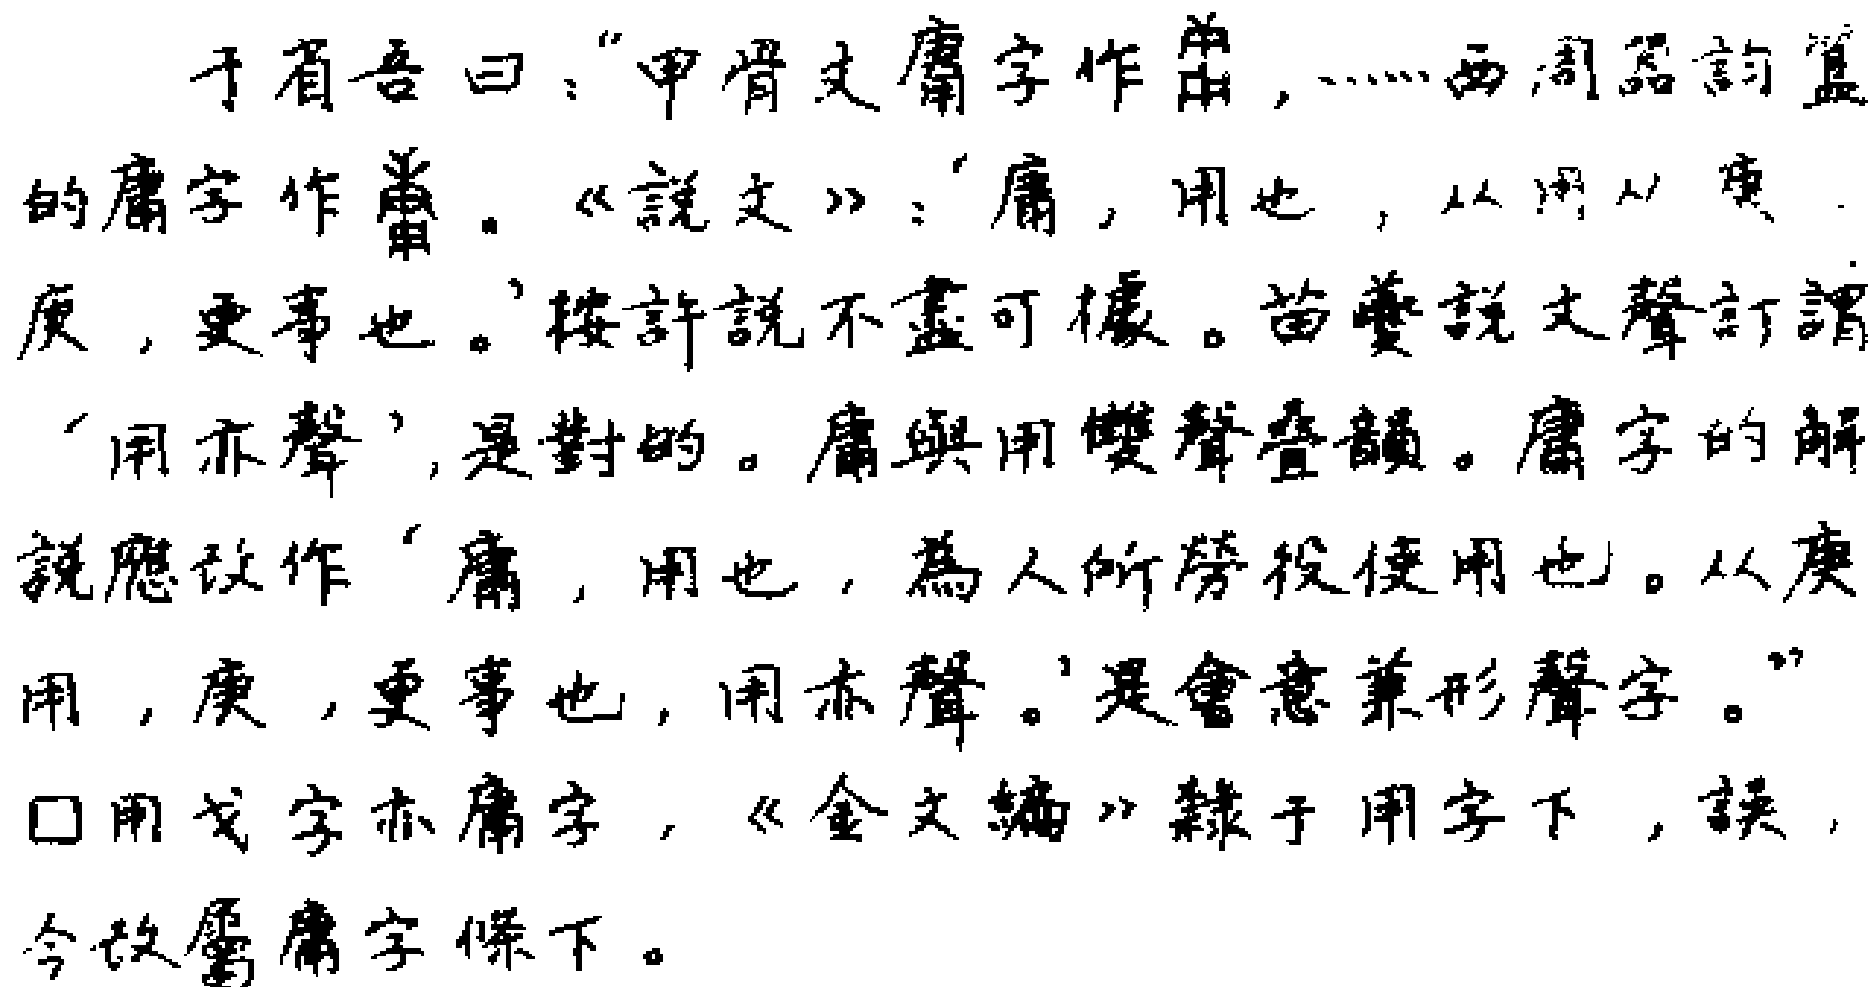 于省吾曰：“甲骨文庸字作，……西周器訇簋
的庸字作。《說文》：‘庸，用也，从用从庚.
庚，更事也。’按許說不盡可據。苗夔說文聲訂謂
‘用亦聲’，是對的。庸與用雙聲叠韻。庸字的解
說應改作‘庸，用也，為人所勞役使用也。从庚
用，庚，更事也，用亦聲。’是會意兼形聲字。”
□用戈字亦庸字，《金文編》隸于用字下，誤，
今改屬庸字條下。